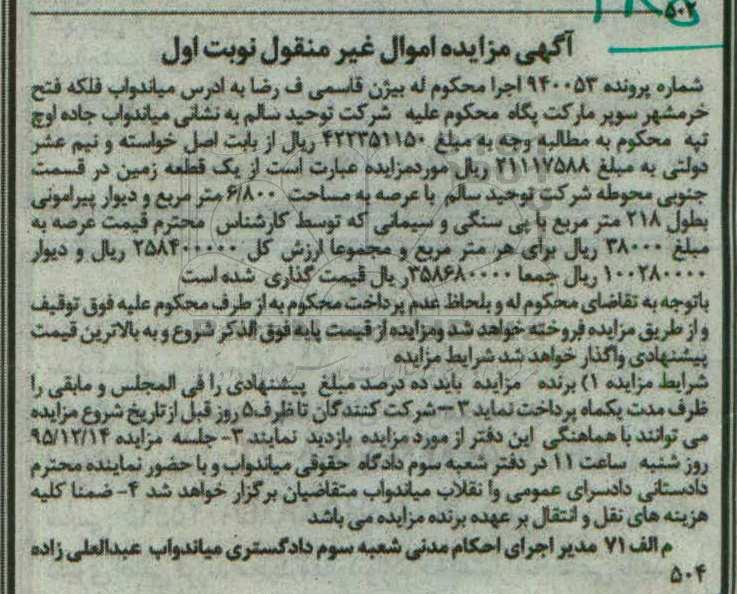 ۵۰۲
آگهی مزایده اموال غیر منقول نوبت اول
شماره پرونده ۹۴۰۰۵۳ اجرا محکوم له بیژن قاسمی ف رضا به ادرس میاندواب فلکه فتح
خرمشهر سوپر مارکت پگاه محکوم علیه شرکت توحید سالم به نشانی میاندواب جاده اوچ
تپه محکوم به مطالبه وجه به مبلغ ۴۲۲۳۵۱۱۵۰ ریال از بابت اصل خواسته و نیم عشر
دولتی به مبلغ ۲۱۱۱۷۵۸۸ ریال موردمزایده عبارت است از یک قطعه زمین در قسمت
جنوبی محوطه شرکت توحید سالم با عرصه به مساحت ۶/۸۰۰ متر مربع و دیوار پیرامونی
بطول ۲۱۸ متر مربع با پی سنگی و سیمانی که توسط کارشناس محترم قیمت عرصه به
مبلغ ۳۸۰۰۰ ریال برای هر متر مربع و مجموعا ارزش کل ۲۵۸۴۰۰۰۰۰ ریال و دیوار
۱۰۰۲۸۰۰۰۰ ریال جمعا ۳۵۸۶۸۰۰۰۰ر یال قیمت گذاری شده است
باتوجه به تقاضای محکوم له و بلحاظ عدم پرداخت محکوم به از طرف محکوم علیه فوق توقیف
و از طریق مزایده فروخته خواهد شد ومزایده از قیمت پایه فوق الذکر شروع و به بالاترین قیمت
پیشنهادی واگذار خواهد شد شرایط مزایده
شرایط مزایده ۱) برنده مزایده باید ده درصد مبلغ پیشنهادی را فی المجلس و مابقی را
ظرف مدت یکماه پرداخت نماید ۲–شرکت کنندگان تا ظرف۵ روز قبل از تاریخ شروع مزایده
می توانند با هماهنگی این دفتر از مورد مزایده بازدید نمایند ۳- جلسه مزایده ۹۵/۱۲/۱۴
روز شنبه ساعت ۱۱ در دفتر شعبه سوم دادگاه حقوقی میاندواب و با حضور نماینده محترم
دادستانی دادسرای عمومی وا نقلاب میاندواب متقاضیان برگزار خواهد شد ۴- ضمنا کلیه
هزینه های نقل و انتقال بر عهده برنده مزایده می باشد
م الف ۷۱ مدیر اجرای احکام مدنی شعبه سوم دادگستری میاندواب عبدالعلی زاده
۵۰۴